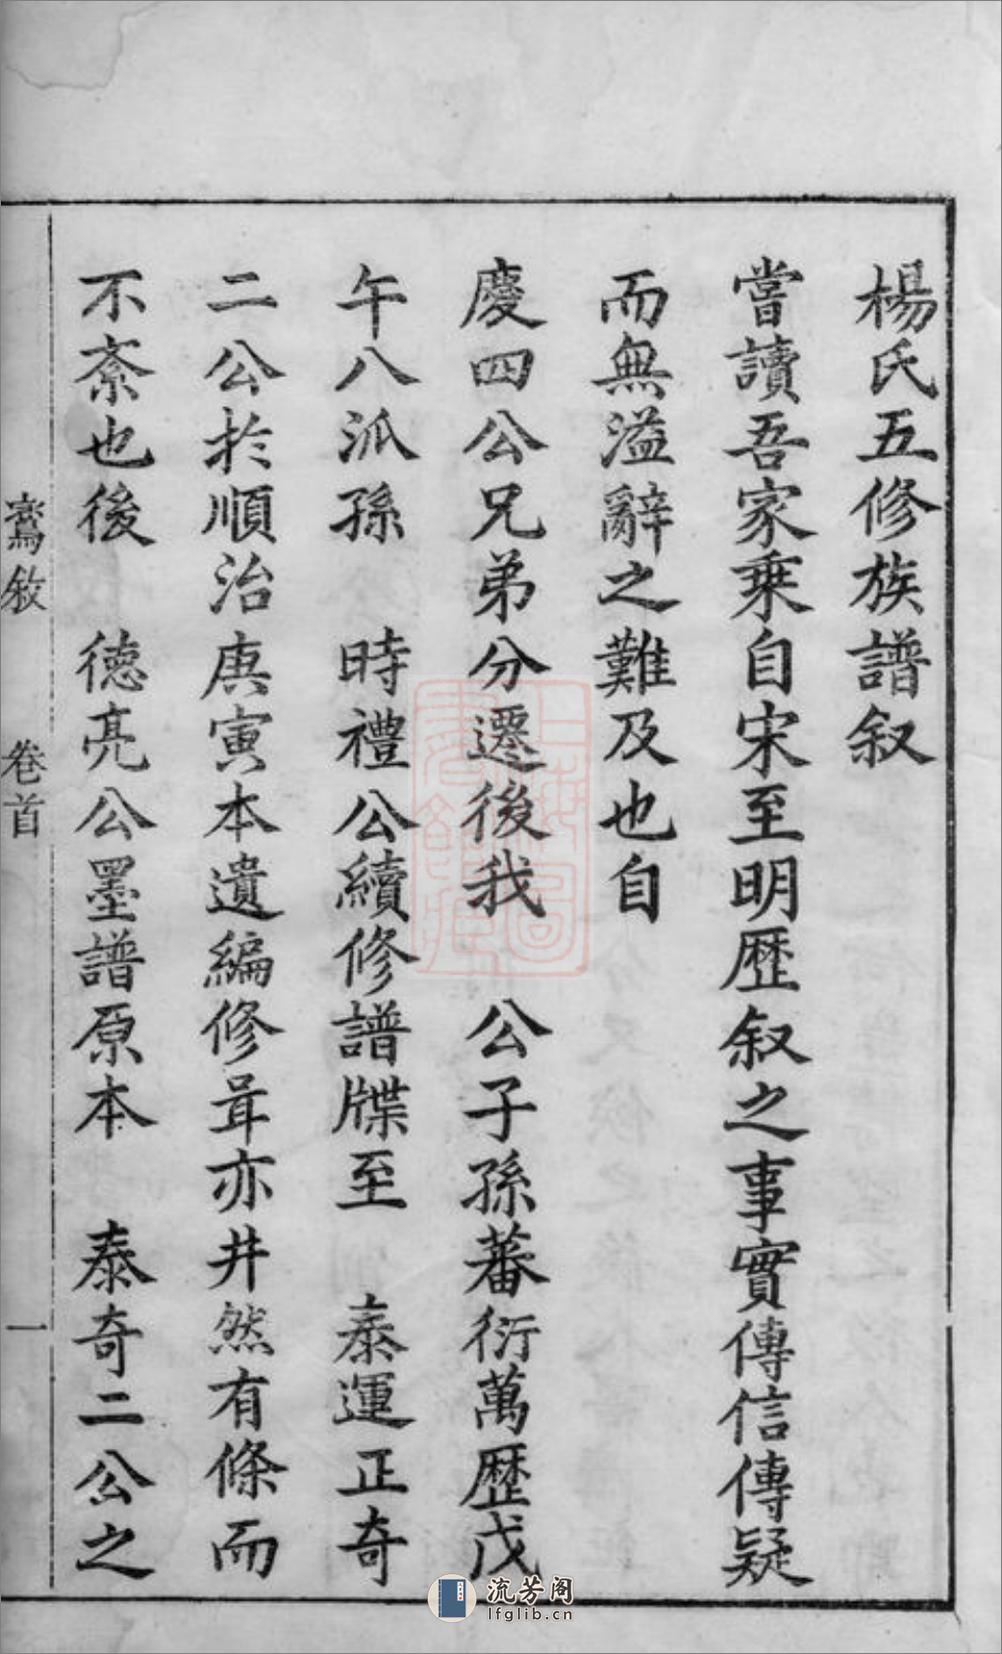 楊氏五修族譜叙
嘗讀吾家乗自宋至明歷叙之事實傳信傳疑
而無溢辭之難及也自
慶四公兄弟分遷後我　公子孫蕃衍萬歷戊
午八派孫　時禮公續修譜牒至　泰運正奇
二公於順治庚寅本遺編修葺亦井然有條而
不紊也後　德亮公墨譜原本　泰奇二公之
卷首
一
流芳阁
lfglib.cn